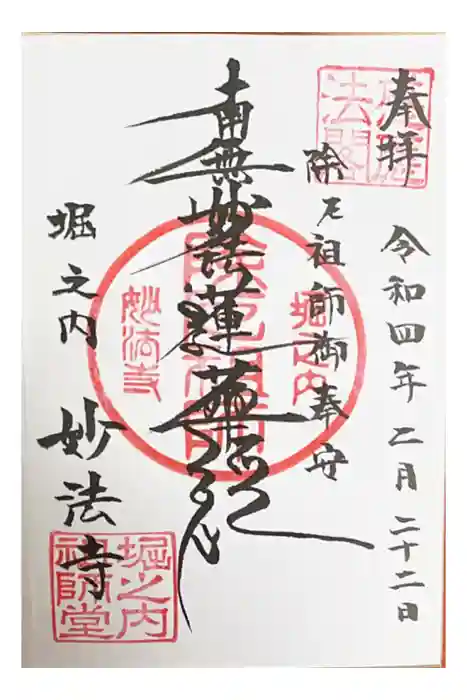 奉拝
令和四年二月二十二日
除厄祖師御奉安
堀之内
南無妙法蓮華経
除厄祖師
妙法寺
堀之内
妙法寺
堀之内
祖師堂